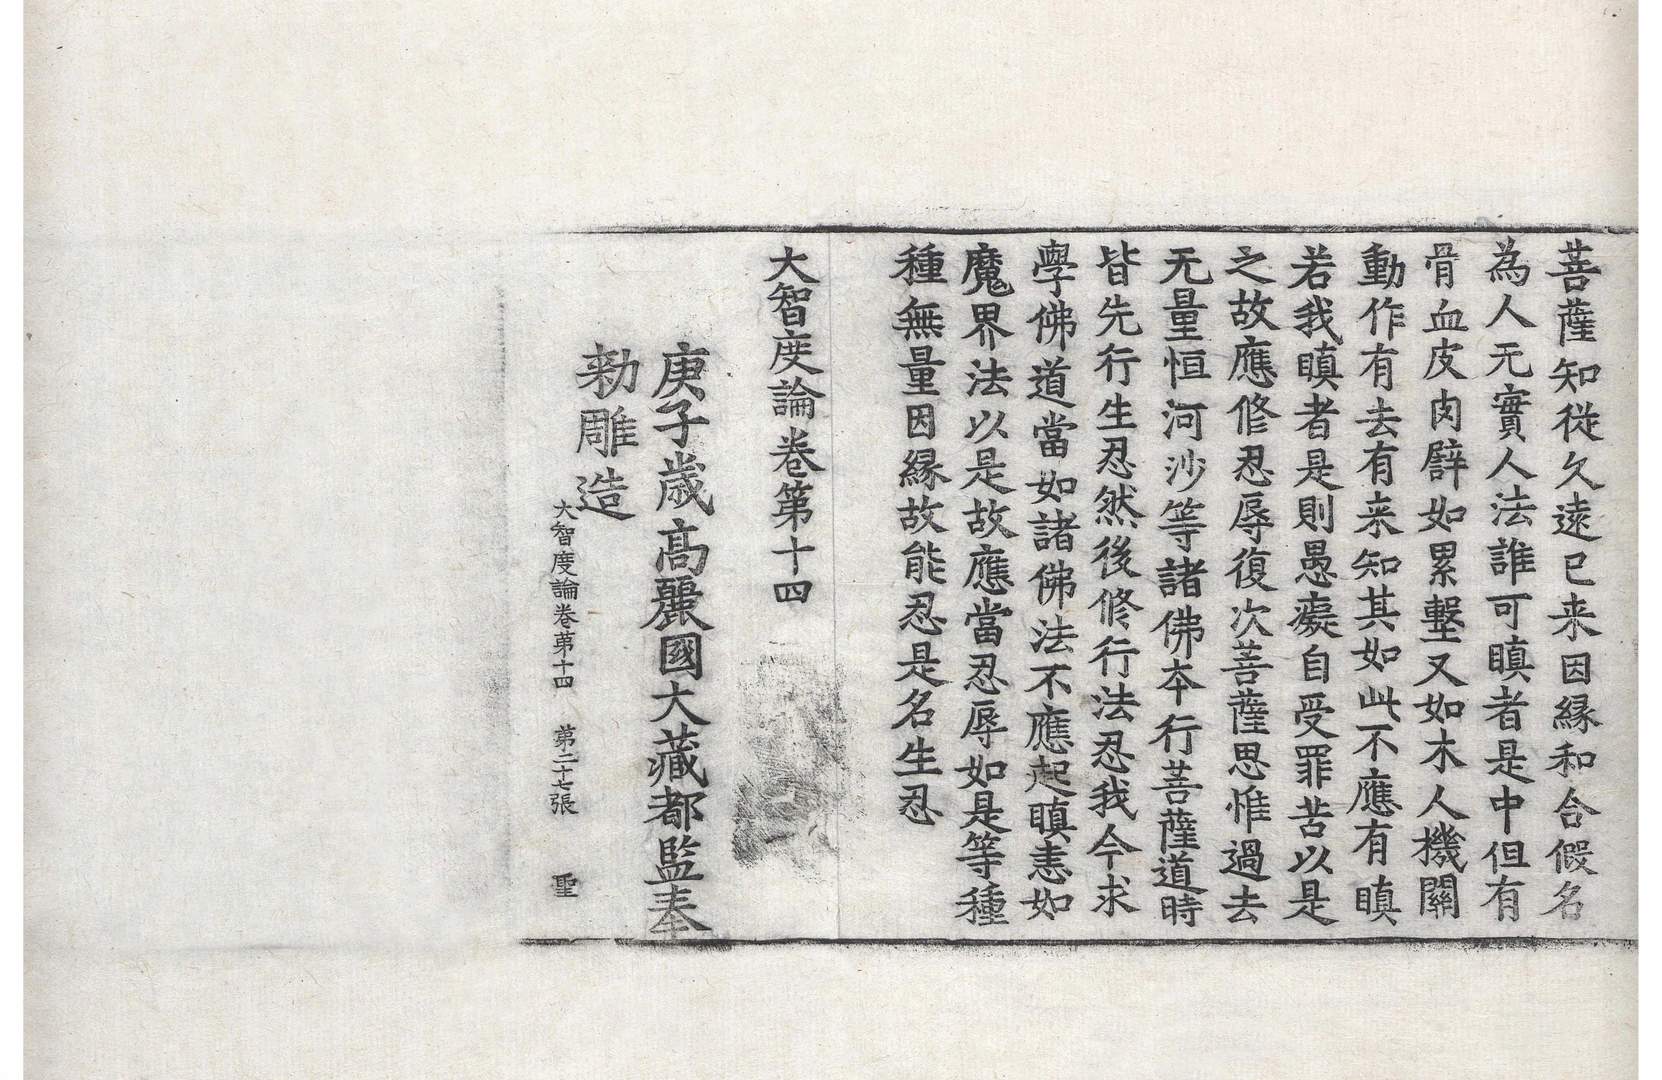 菩薩知從久遠已来因縁和合假名
為人无實人法誰可瞋者是中但有
骨血皮肉譬如累墼又如木人機關
動作有去有来知其如此不應有瞋
若我瞋者是則愚癡自受罪苦以是
之故應修忍辱復次菩薩思惟過去
无量恒河沙等諸佛本行菩薩道時
皆先行生忍然後修行法忍我今求
學佛道當如諸佛法不應起瞋恚如
魔界法以是故應當忍辱如是等種
種無量因縁故能忍是名生忍
大智度論卷第十四
庚子歲高麗國大藏都監奉
勑雕造
大智度論卷第十四 第二十七張 聖